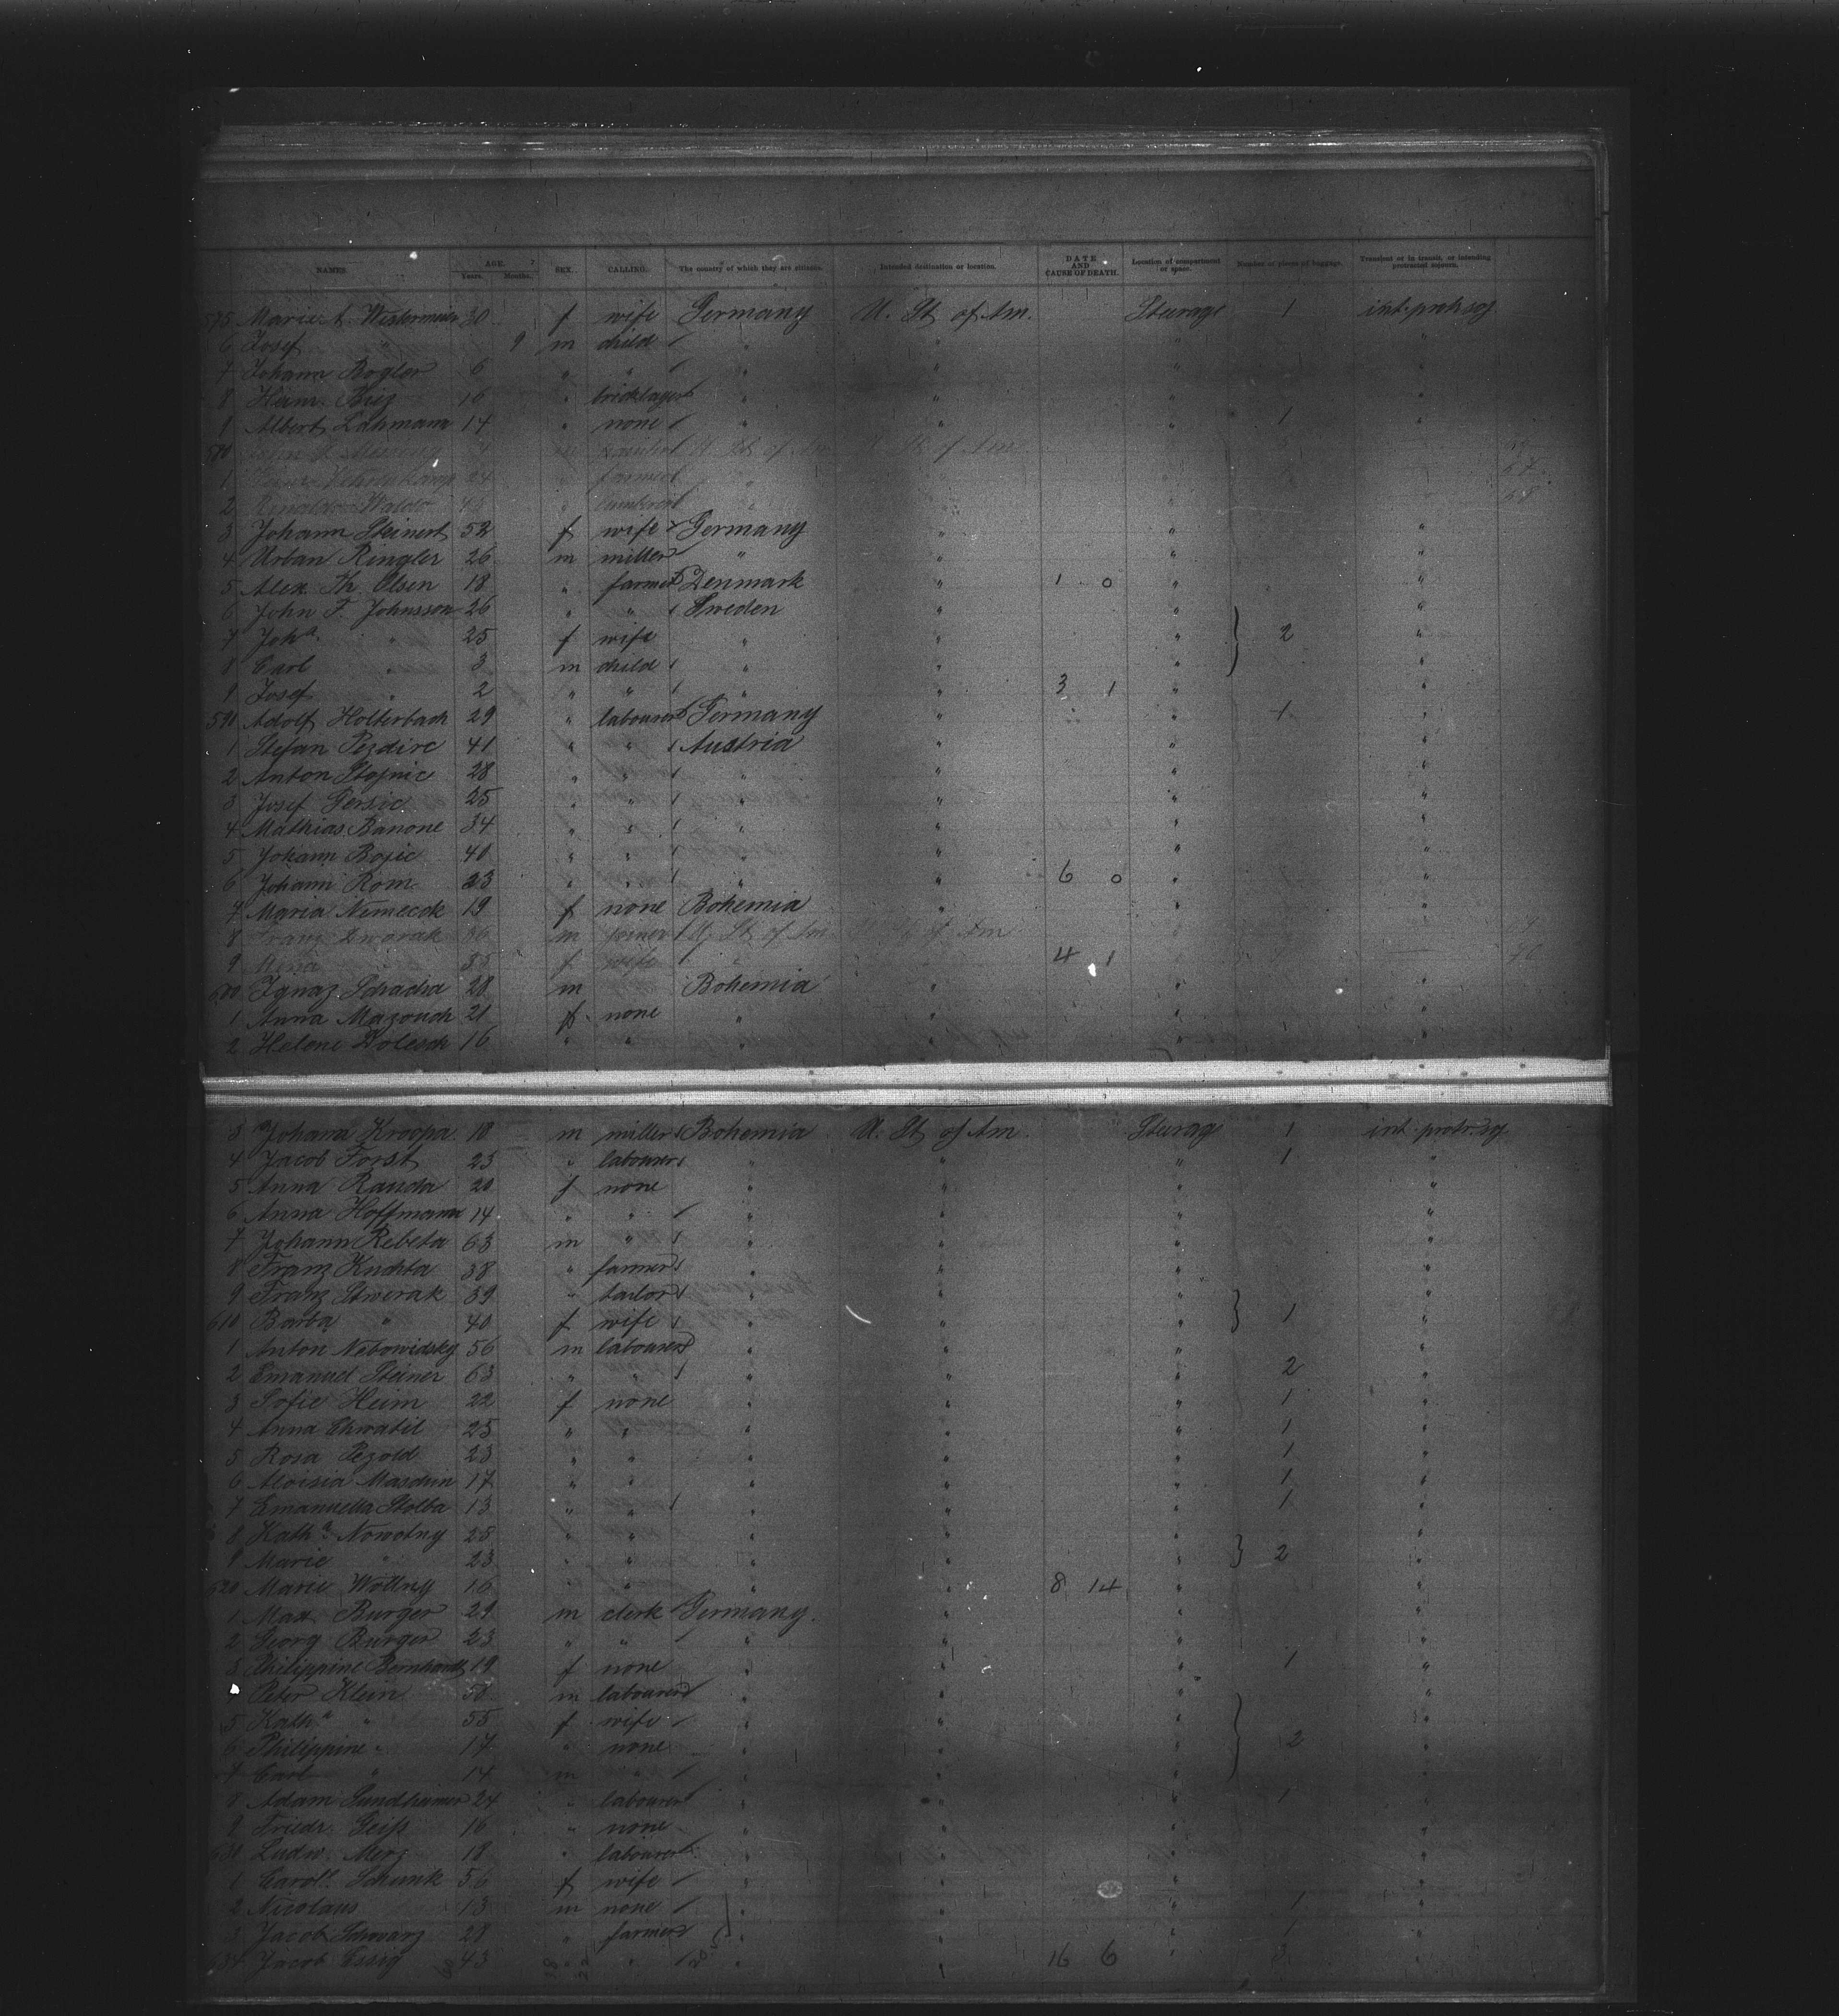 NAMES. AGE. Years. Months. SEX. CALLING. The country of which they are citizens. Intended destination or location. DATE AND CAUSE OF DEATH. Location of compartment or space. Number of pieces of baggage. Transient or in transit, or intending protracted sojourn.
575 Marie A. Westermeier 30 f wife Germany U. St. of Am. Steerage 1 int. protr. soj.
6 Josef " 9 m child " " " "
7 Johann Rogler 6 " " " " " "
8 Heinr. 16 " bricklayer " " " "
9 Albert Lahmann 14 " none " " " 1 "
580 m U. St. of Am. U. St. of Am.
1 24 farmer 67
2 Waldo 68
3 Johann Steinert 52 f wife Germany " " "
4 Urban Ringler 26 m miller " " " "
5 Alex. Th. Olsen 18 " farmer Denmark " 1 0 " "
6 John F. Johnsson 26 " " Sweden " " "
7 Joh.a " 25 f wife " " " 2 "
8 Carl " 3 m child " " " "
9 Josef " 2 " " " " 3 1 " "
590 Adolf Holterbach 29 " labourer Germany " " 1 "
1 Stefan Pezdirc 41 " " Austria " " "
2 Anton Stojnic 28 " " " " " "
3 Josef Persic 25 " " " " " "
4 Mathias Banone 34 " " " " " "
5 Johann Bojic 40 " " " " " "
6 Johann Rom 23 " " " " 6 0 " "
7 Maria Nemecek 19 f none Bohemia " " "
8 Franz Dworak 36 m joiner U. St. of Am. U. St. of Am.
9 35 f wife " 4 1
600 Ignaz Schacha 28 m Bohemia " " "
1 Anna Mazouch 21 f none " " " "
2 Helene Dolesch 16 " " " " " "
3 Johann Kroopa 18 m miller Bohemia U. St. of Am. Steerage 1 int. protr. soj.
4 Jacob Forst 23 " labourer " " " 1 "
5 Anna Randa 20 f none " " " "
6 Anna Hoffmann 14 " " " " " "
7 Johann Rebeta 63 m " " " " "
8 Franz Kuchta 38 " farmer " " " "
9 Franz Stwerak 39 " tailor " " " "
610 Barba " 40 f wife " " " 1 "
1 Anton Nebowidsky 56 m labourer " " " "
2 Emanuel Steiner 63 " " " " " 2 "
3 Sofie Heim 22 f none " " " 1 "
4 Anna Chwatil 25 " " " " " 1 "
5 Rosa Pezold 23 " " " " " 1 "
6 Aloisia Maschin 17 " " " " " 1 "
7 Emanuella Stolba 13 " " " " " 1 "
8 Kath.a Nowotny 25 " " " " " "
9 Marie " 23 " " " " " 2 "
620 Marie Wottny 16 " " " " 8 14 " "
1 Max Burger 29 m clerk Germany " " "
2 Georg Burger 23 " " " " " "
3 Philippine Bernhardt 19 f none " " " 1 "
4 Peter Klein 58 m labourer " " " "
5 Kath.a " 55 f wife " " " "
6 Philippine " 17 " none " " " 2 "
7 Carl " 14 m " " " " "
8 Adam Sundheimer 24 " labourer " " " 1 "
9 Friedr. Geiss 16 " none " " " "
630 Ludw. Merz 18 " labourer " " " "
1 Carol. Schunk 56 f wife " " " "
2 Nicolaus 13 m none " " " 1 "
3 Jacob Schwarz 28 " farmer " " " 1 "
634 Jacob Essig 43 " " " " 16 6 " 3 "